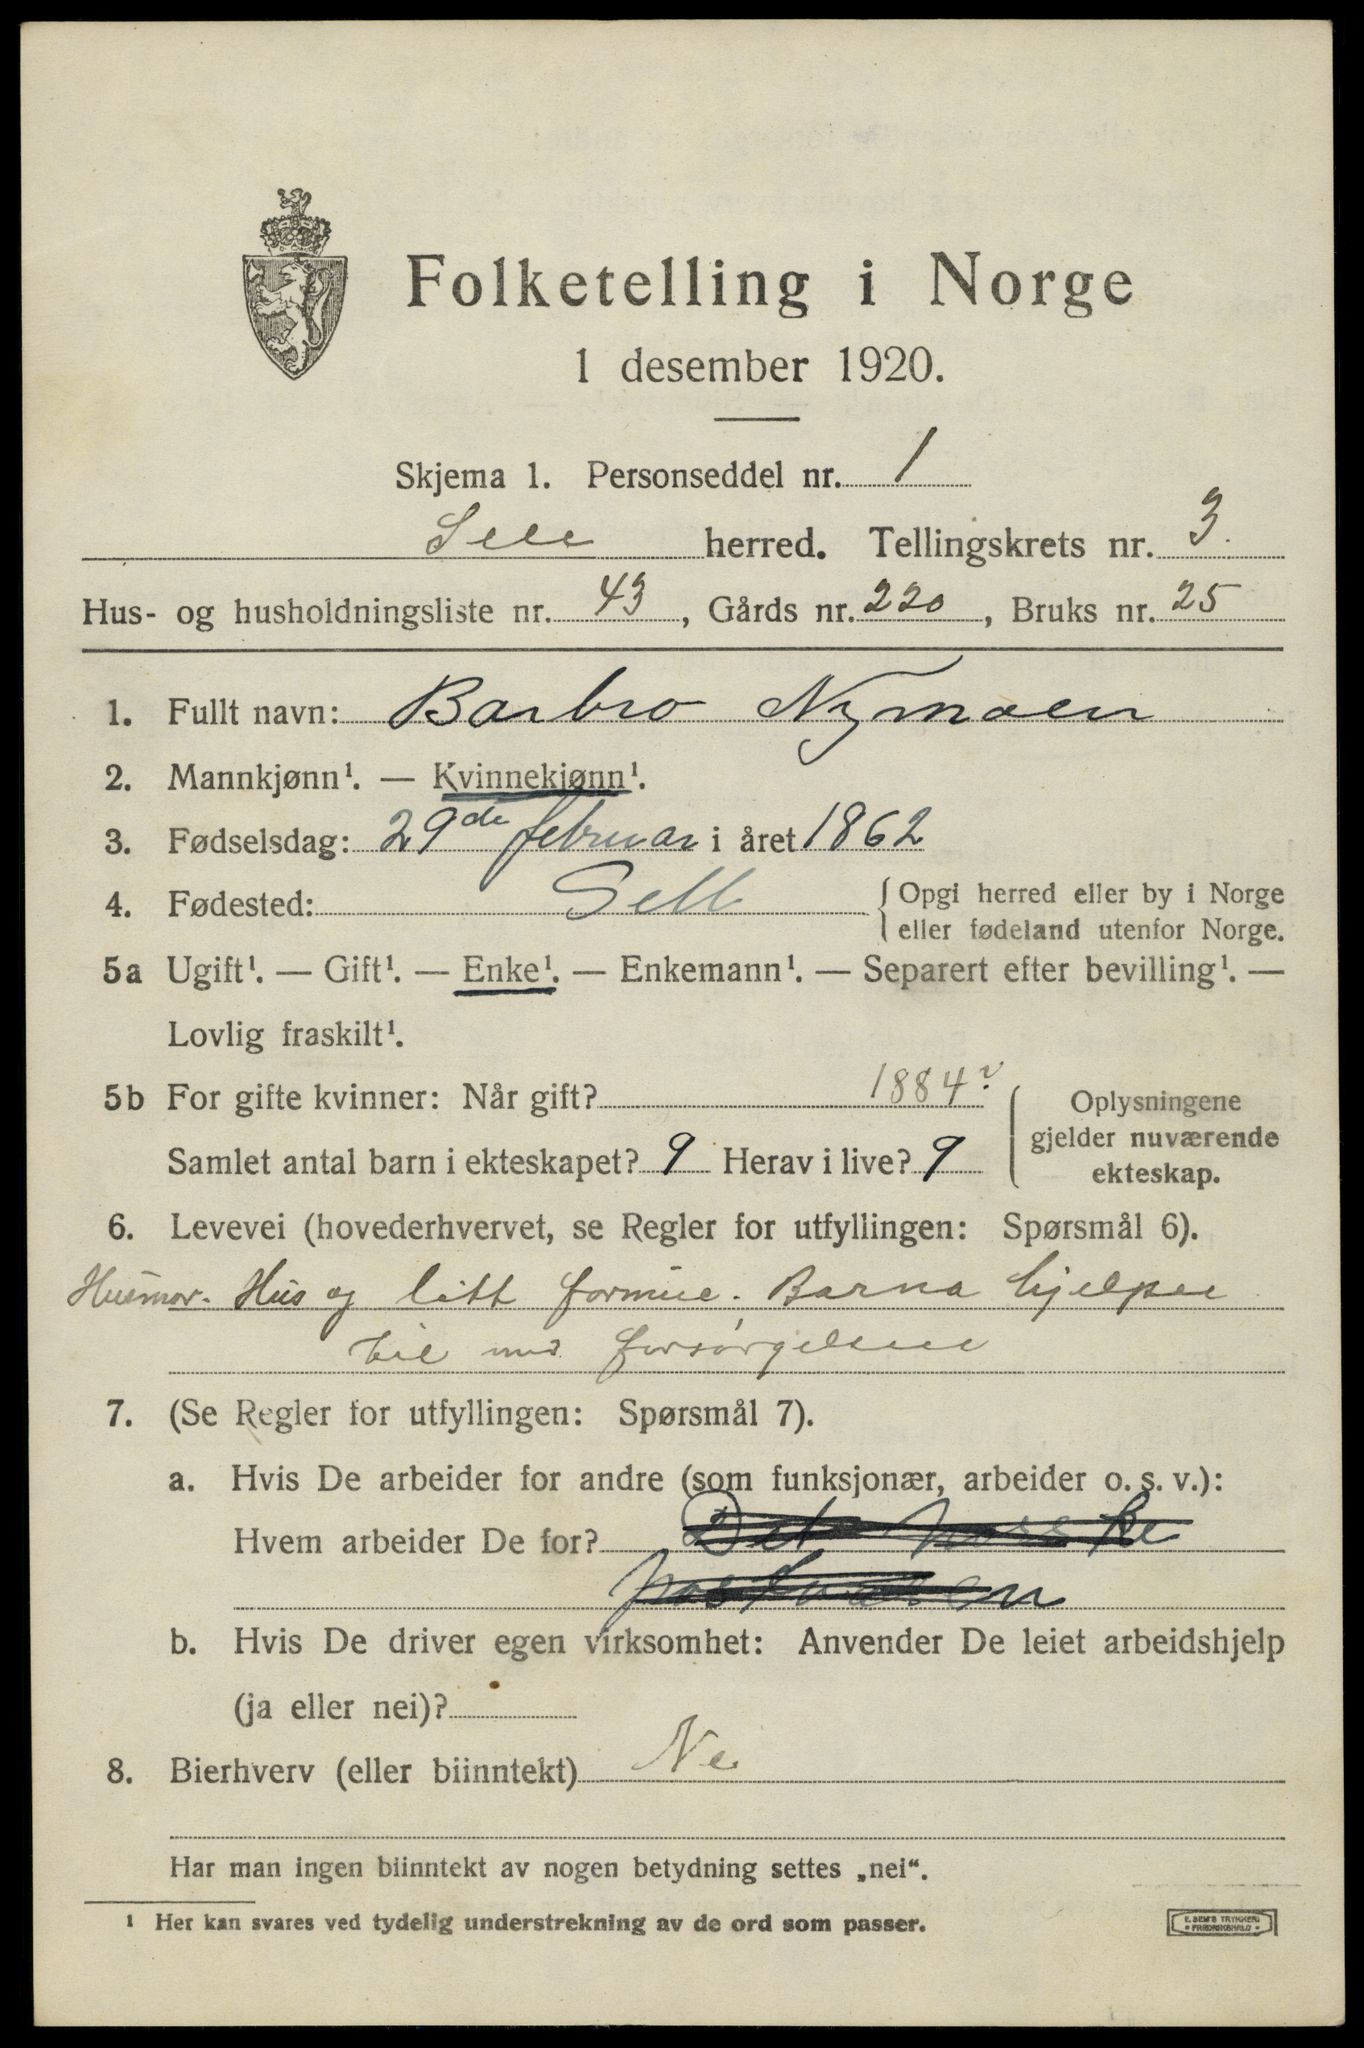 Folketelling i Norge
1 desember 1920.
Skjema 1. Personseddel nr. 1
Sell herred. Tellingskrets nr. 3.
Hus- og husholdningsliste nr. 43, Gårds nr. 220, Bruks nr. 25
1. Fullt navn: Barbro Nymoen
2. Mannkjønn¹. — Kvinnekjønn¹.
3. Fødselsdag: 29de februar i året 1862
4. Fødested: Sell { Opgi herred eller by i Norge
eller fødeland utenfor Norge.
5a Ugift¹. — Gift¹. — Enke¹. — Enkemann¹. — Separert efter bevilling¹. —
Lovlig fraskilt¹.
5b For gifte kvinner: Når gift? 1884?
Samlet antal barn i ekteskapet? 9 Herav i live? 9
Oplysningene
gjelder nuværende
ekteskap.
6. Levevei (hovederhvervet, se Regler for utfyllingen: Spørsmål 6).
Husmor. Hus og litt formue. Barna hjelper
til med forsørgelsen
7. (Se Regler for utfyllingen: Spørsmål 7).
a. Hvis De arbeider for andre (som funksjonær, arbeider o. s. v.):
Hvem arbeider De for? Det norske
postvæsen
b. Hvis De driver egen virksomhet: Anvender De leiet arbeidshjelp
(ja eller nei)?
8. Bierhverv (eller biinntekt) Nei
Har man ingen biinntekt av nogen betydning settes „nei“.
¹ Her kan svares ved tydelig understrekning av de ord som passer.
E. SEM'S TRYKKERI
FREDRIKSHALD